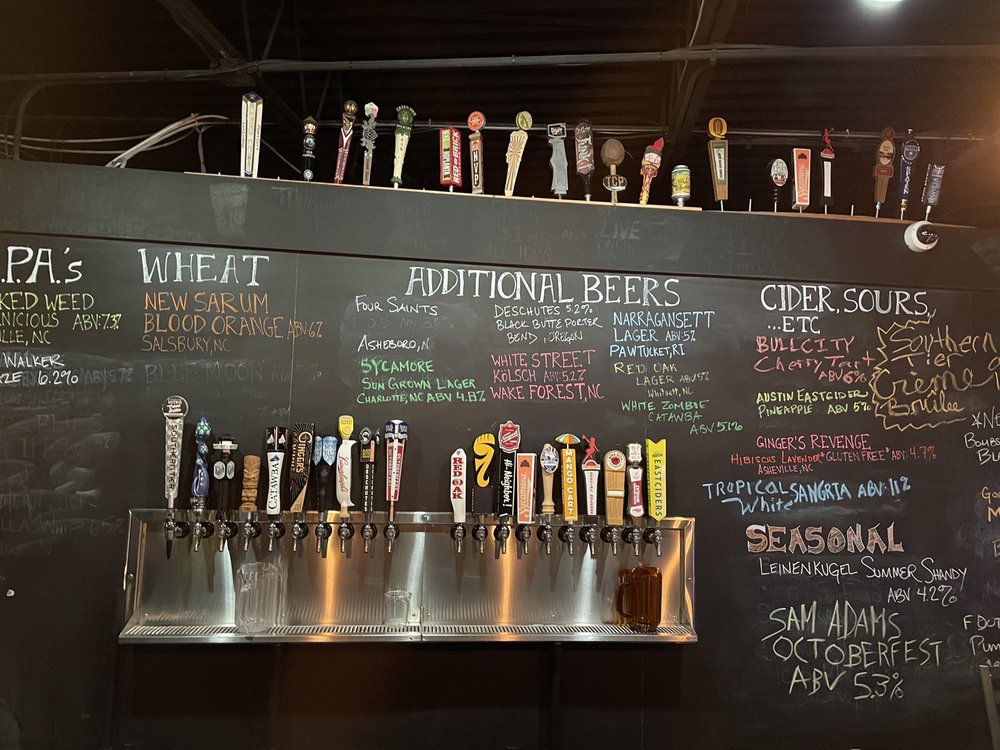 .P.A.'s
KED WEED
NICIOUS ABV: 7.3%
VILLE, NC
WALKER
ZE 6.2%
WHEAT
NEW SARUM
BLOOD ORANGE ABV 6%
SALSBURY, NC
BLUE MOON
ADDITIONAL BEERS
FOUR SAINTS
ASHEBORO, N
SYCAMORE
SUN GROWN LAGER
CHARLOTTE, NC ABV 4.8%
DESCHUTES 5.2%
BLACK BUTTE PORTER
BEND, OREGON
WHITE STREET
KÖLSCH ABV 5.2%
WAKE FOREST, NC
NARRAGANSETT
LAGER ABV 5%
PAWTUCKET, RI
RED OAK
LAGER ABV 5%
WHITSETT, NC
WHITE ZOMBIE
CATAWBA
ABV 5.1%
CIDER, SOURS,
...ETC
BULLCITY
Cherry Tart
ABV 6%
AUSTIN EASTCIDER
PINEAPPLE ABV 5%
GINGER'S REVENGE
HIBISCUS LAVENDER *GLUTEN FREE* ABV 4.7%
ASHEVILLE, NC
TROPICAL SANGRIA ABV 11%
White
Southern
Tier
Crème
Brulee
SEASONAL
LEINENKUGEL SUMMER SHANDY
ABV 4.2%
SAM ADAMS
OCTOBERFEST
ABV 5.3%
RED OAK
CATAWBA
GINGER'S
DESCHUTES
Hi, Neighbor!
Sycamore
MANGO CART
EASTCIDERS
TCP